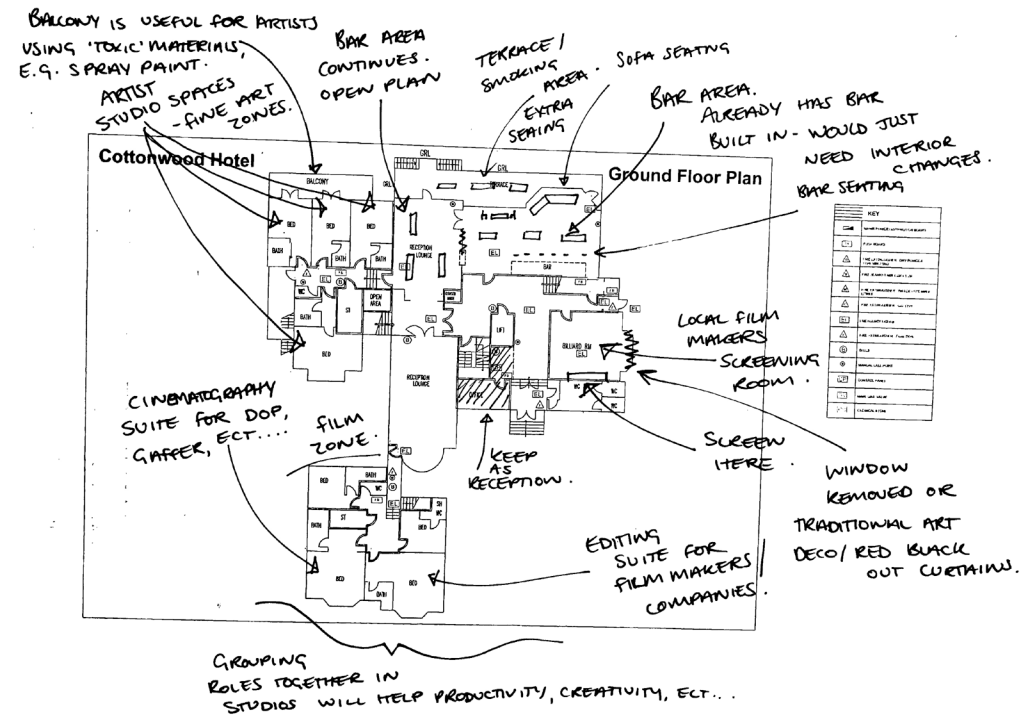 BALCONY IS USEFUL FOR ARTISTS
USING 'TOXIC' MATERIALS,
E.G. SPRAY PAINT.
ARTIST
STUDIO SPACES
- FINE ART
ZONES.
BAR AREA
CONTINUES.
OPEN PLAN
TERRACE/
SMOKING
AREA.
EXTRA
SEAING
SOFA SEATNG
BAR AREA.
ALREADY HAS BAR
BUILT IN - WOULD JUST
NEED INTERIOR
CHANGES.
BAR SEATING
Cottonwood Hotel
Ground Floor Plan
GRL
GRL
BALCONY
GRL
TERRACE
BED
BED
BED
BATH
BATH
BATH
RECEPTION
LOUNGE
BAR
WC
OPEN
AREA
ST
BATH
BED
LIFT
BILLIARD RM
RECEPTION
LOUNGE
OFFICE
WC
WC
WC
KEY
LOCAL FILM
MAKERS
SCREENING
ROOM.
CINEMATOGRAPHY
SUITE FOR DOP,
GAFFER, ECT....
FILM
ZONE.
KEEP
AS
RECEPTION.
SCREEN
HERE.
WINDOW
REMOVED OR
TRADITIONAL ART
DECO/RED BLACK
OUT CURTAINS.
BED
BATH
WC
SH
WC
BATH
ST
BED
BED
BED
BATH
EDITING
SUITE FOR
FILM MAKERS/
COMPANIES.
GROUPING
ROLES TOGETHER IN
STUDIOS WILL HELP PRODUCTIVITY, CREATIVITY, ECT...